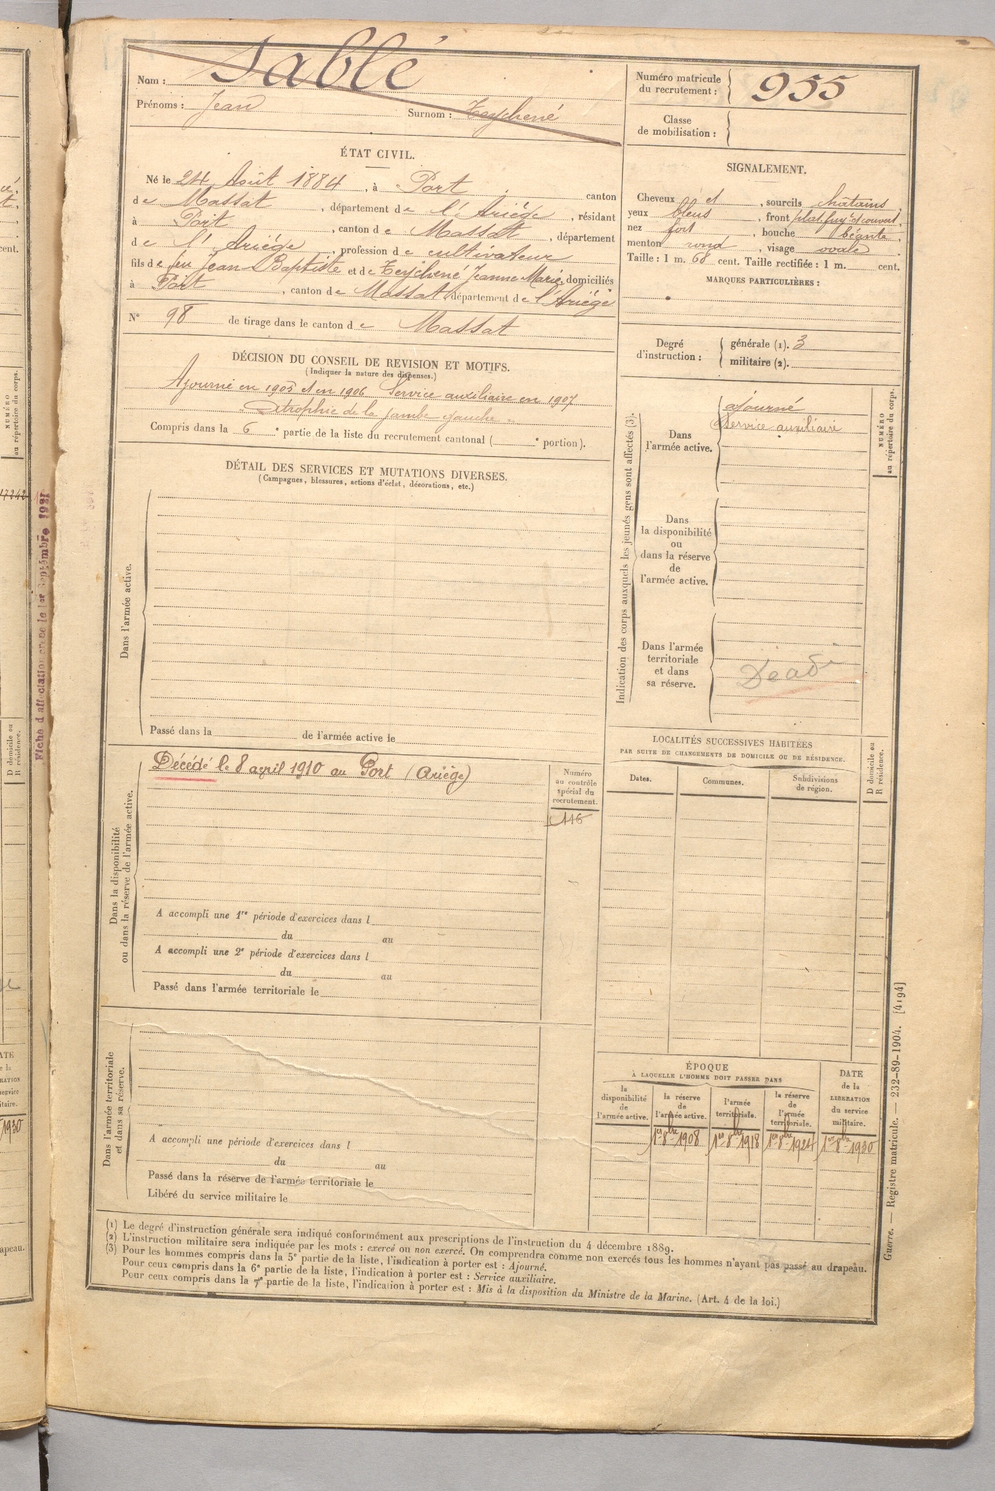 Nom : Sablé
Prénoms : Jean
Surnom : Teychené
Numéro matricule
du recrutement : 955
Classe
de mobilisation :
ÉTAT CIVIL.
Né le 24 Août 1884, à Port, canton
de Massat, département de l'Ariège, résidant
à Port, canton de Massat, département
de l'Ariège, profession de cultivateur
fils de feu Jean Baptiste et de Teychené Jeanne Marie, domiciliés
à Port, canton de Massat, département de l'Ariège
N° 98 de tirage dans le canton de Massat
SIGNALEMENT.
Cheveux et, sourcils châtains
yeux bleus, front
nez fort, bouche béante
menton rond, visage ovale
Taille : 1 m. 68 cent. Taille rectifiée : 1 m. cent.
MARQUES PARTICULIÈRES :
Degré
d'instruction :
générale (1). 3
militaire (2).
DÉCISION DU CONSEIL DE REVISION ET MOTIFS.
(Indiquer la nature des dispenses.)
Ajourné en 1905 et en 1906 Service auxiliaire en 1907
Atrophie de la jambe gauche
Compris dans la 6e partie de la liste du recrutement cantonal ( e portion).
DÉTAIL DES SERVICES ET MUTATIONS DIVERSES.
(Campagnes, blessures, actions d'éclat, décorations, etc.)
Dans l'armée active.
Passé dans la de l'armée active le
Indication des corps auxquels les jeunes gens sont affectés (3).
NUMÉRO
au répertoire du corps.
Dans
l'armée active.
Ajourné
Service auxiliaire
Dans
la disponibilité
ou
dans la réserve
de
l'armée active.
Dans l'armée
territoriale
et dans
sa réserve.
Dans la disponibilité
ou dans la réserve de l'armée active.
Décédé le 8 avril 1910 au Port (Ariège)
Numéro
au contrôle
spécial du
recrutement.
A accompli une 1re période d'exercices dans l
du au
A accompli une 2e période d'exercices dans l
du au
Passé dans l'armée territoriale le
LOCALITÉS SUCCESSIVES HABITÉES
PAR SUITE DE CHANGEMENTS DE DOMICILE OU DE RÉSIDENCE.
Dates.
Communes.
Subdivisions
de région.
D domicile ou
R résidence.
Dans l'armée territoriale
et dans sa réserve.
A accompli une période d'exercices dans l
du au
Passé dans la réserve de l'armée territoriale le
Libéré du service militaire le
ÉPOQUE
À LAQUELLE L'HOMME DOIT PASSER DANS
la
disponibilité
de
l'armée active.
la réserve
de
l'armée active.
l'armée
territoriale.
la réserve
de
l'armée
territoriale.
DATE
de la
LIBÉRATION
du service
militaire.
1er 8bre 1908
1er 8bre 1918
1er 8bre 1924
1er 8bre 1930
(1) Le degré d'instruction générale sera indiqué conformément aux prescriptions de l'instruction du 4 décembre 1889.
(2) L'instruction militaire sera indiquée par les mots : exercé ou non exercé. On comprendra comme non exercés tous les hommes n'ayant pas passé au drapeau.
(3) Pour les hommes compris dans la 5e partie de la liste, l'indication à porter est : Ajourné.
Pour ceux compris dans la 6e partie de la liste, l'indication à porter est : Service auxiliaire.
Pour ceux compris dans la 7e partie de la liste, l'indication à porter est : Mis à la disposition du Ministre de la Marine. (Art. 4 de la loi.)
Guerre. — Registre matricule. — 232-89-1904. [4194]